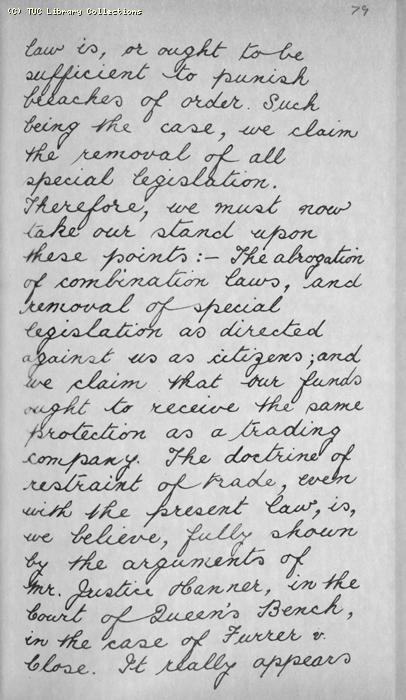 (C) TUC Library Collections
79
law is, or ought to be
sufficient to punish
breaches of order. Such
being the case, we claim
the removal of all
special legislation.
Therefore, we must now
take our stand upon
these points:- The abrogation
of combination laws, and
removal of special
legislation as directed
against us as citizens; and
we claim that our funds
ought to receive the same
protection as a trading
company. The doctrine of
restraint of trade, even
with the present law, is,
we believe, fully shown
by the arguments of
Mr. Justice Hanner, in the
Court of Queen's Bench,
in the case of Furrer v.
Close. It really appears